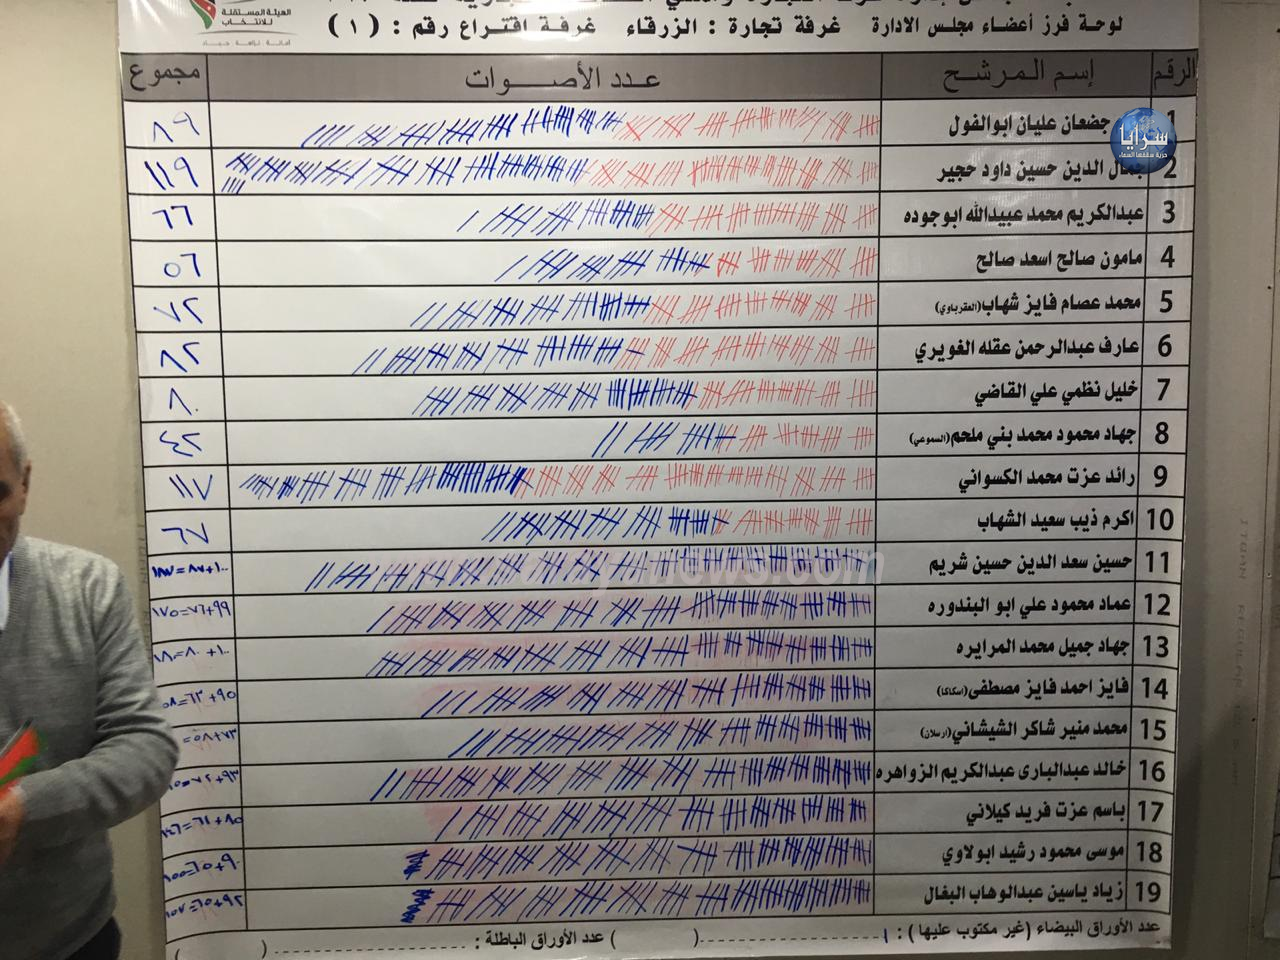 الهيئة المستقلة
للانتخاب
لوحة فرز أعضاء مجلس الادارة غرفة تجارة : الزرقاء غرفة اقتراع رقم : ( ١ )
الرقم إسم المرشح عدد الأصوات مجموع
سرايا
حرية سقفها السماء
1 جضعان عليان ابوالفول ٨٩
2 جمال الدين حسين داود حجير ١١٩
3 عبدالكريم محمد عبيدالله ابوجوده ٦٦
4 مامون صالح اسعد صالح ٥٦
5 محمد عصام فايز شهاب(العقرباوي) ٧٢
6 عارف عبدالرحمن عقله الغويري ٨٢
7 خليل نظمي علي القاضي ٨٠
8 جهاد محمود محمد بني ملحم(السموعي) ٤٢
9 رائد عزت محمد الكسواني ١١٧
10 اكرم ذيب سعيد الشهاب ٦٧
11 حسين سعد الدين حسين شريم ١٠٠+٨٧=١٨٧
12 عماد محمود علي ابو البندوره ٩٩+٧٦=١٧٥
13 جهاد جميل محمد المرايره ١٠٠+٨٠=
14 فايز احمد فايز مصطفى(اسكاكا) ٩٥+٦٣=
15 محمد منير شاكر الشيشاني(ارسلان) ٧٣+٥٨=
16 خالد عبدالبارى عبدالكريم الزواهره ٩٣+٧٢=
17 باسم عزت فريد كيلاني ٨٥+٦١=١٤٦
18 موسى محمود رشيد ابولاوي ٩٠+٦٥=١٥٥
19 زياد ياسين عبدالوهاب البغال ٩٢+٦٥=١٥٧
عدد الأوراق البيضاء (غير مكتوب عليها) : ١ ( ) عدد الأوراق الباطلة : ( )